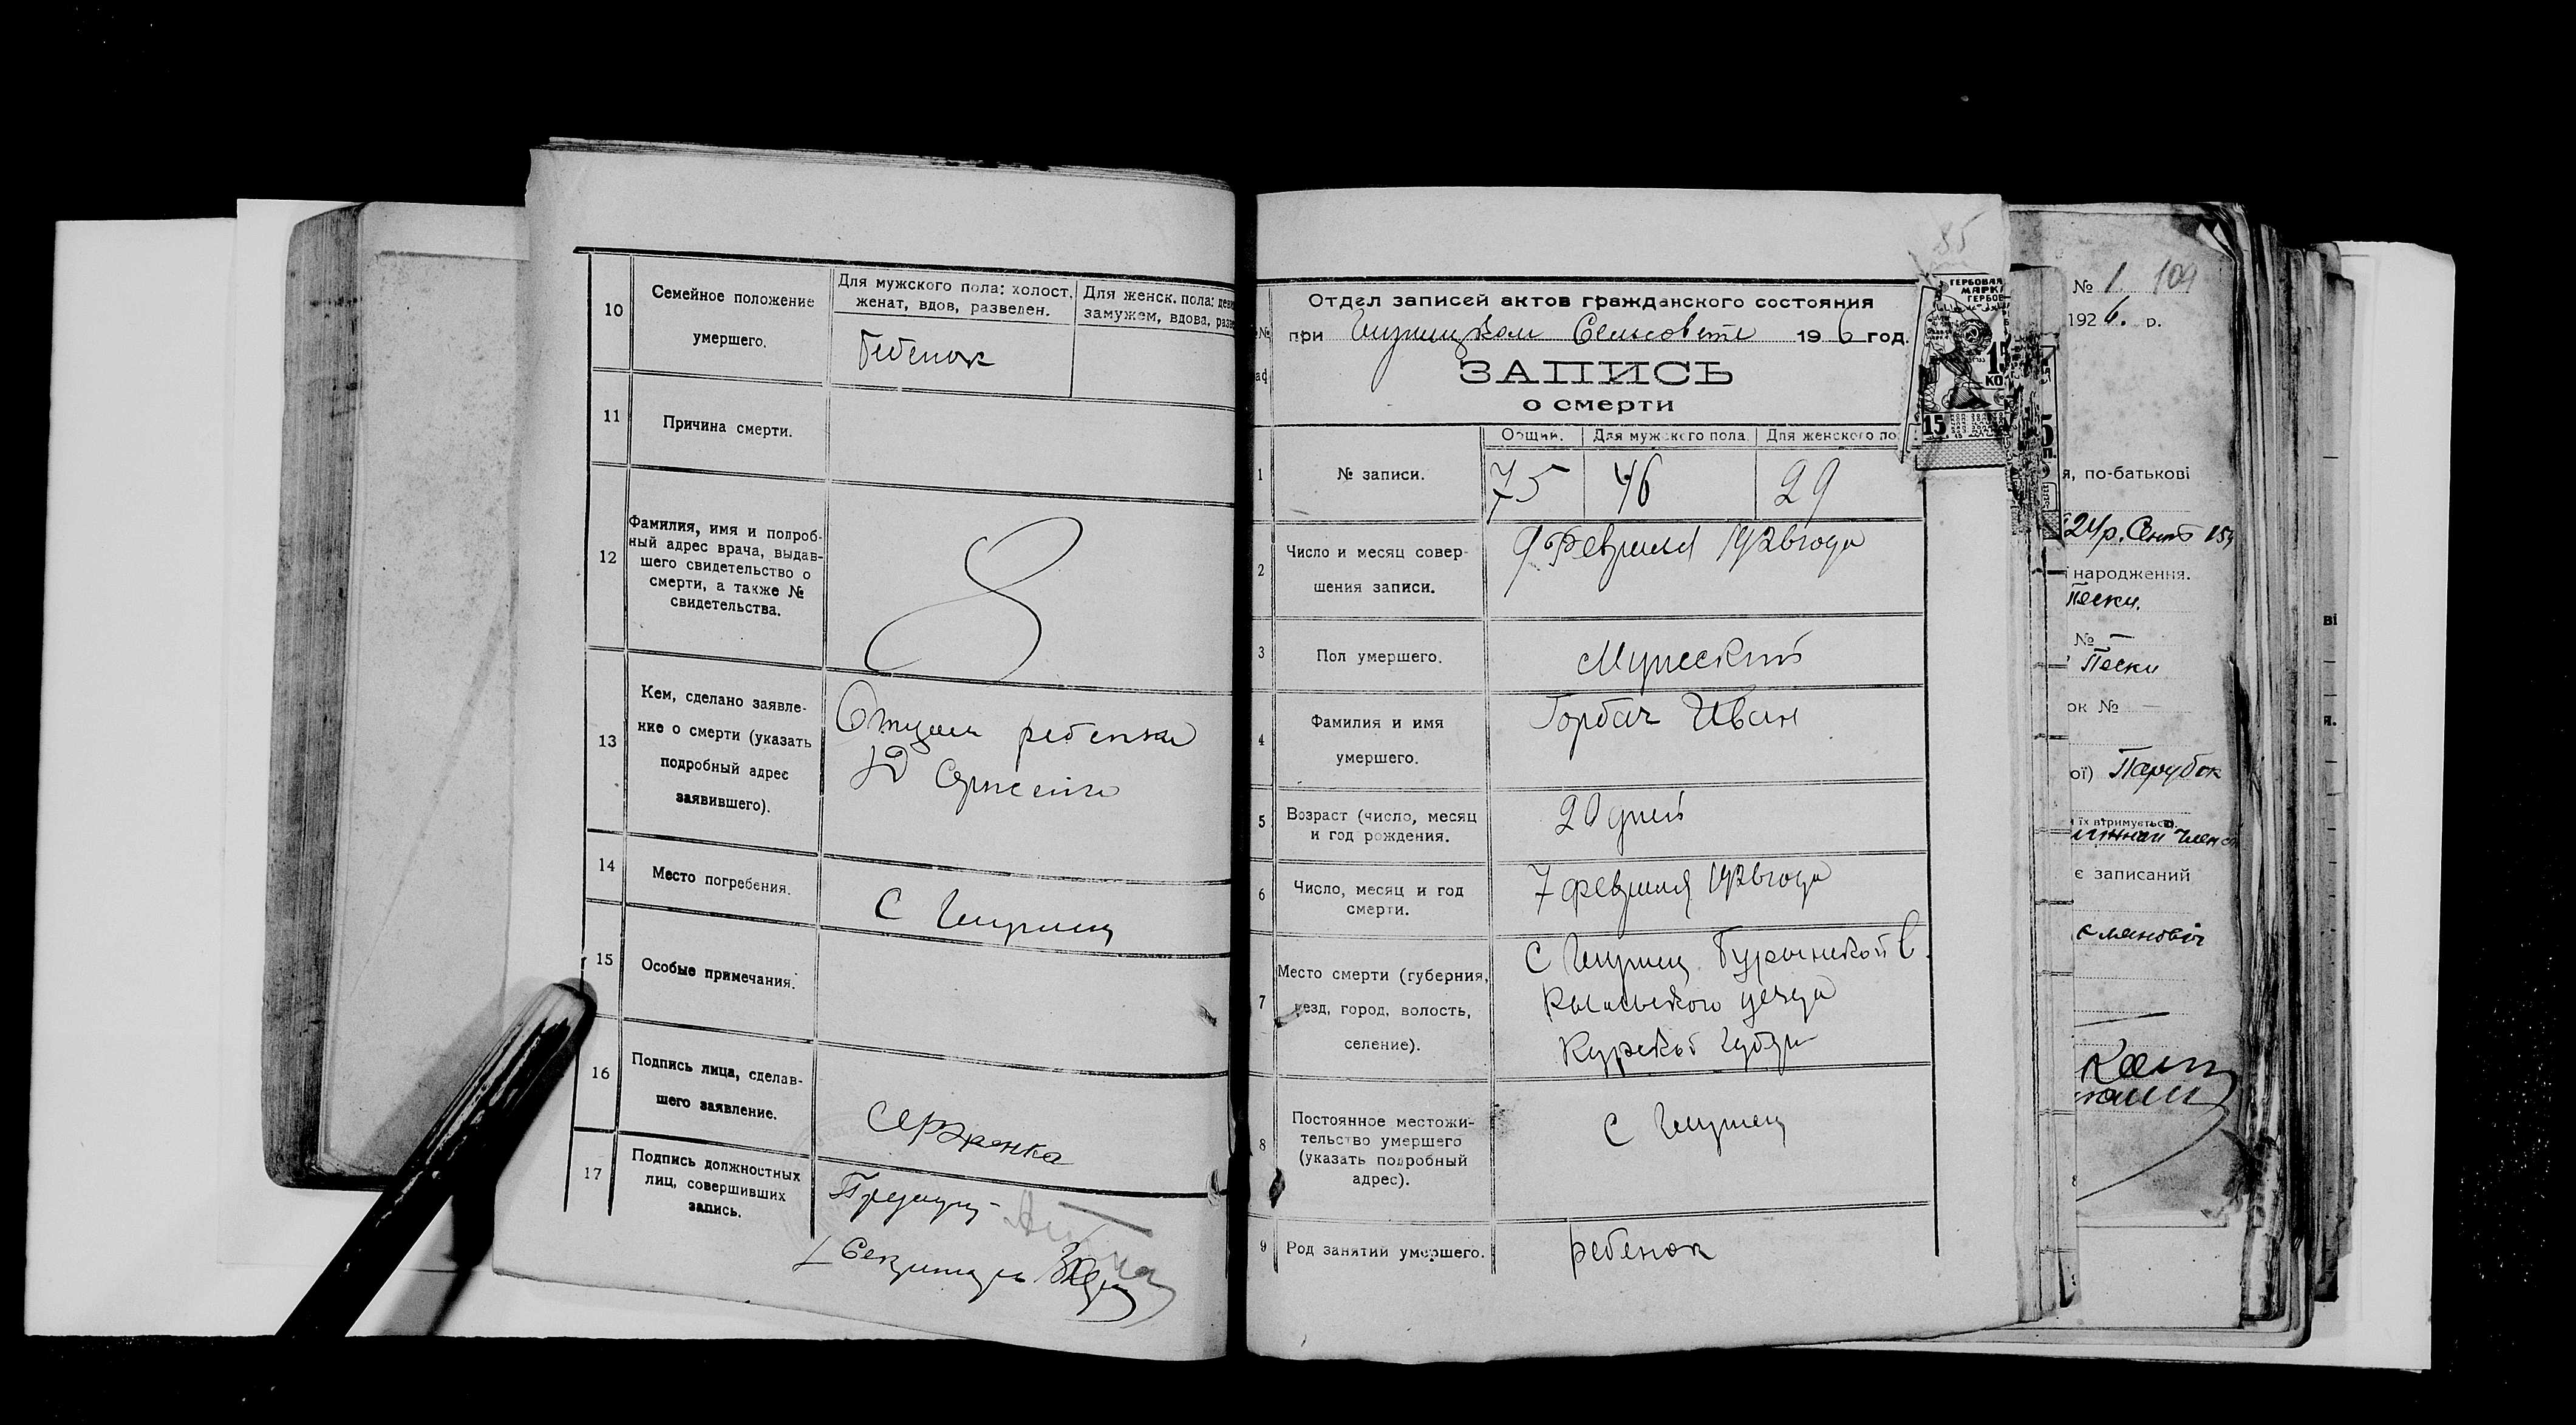 10
Семейное положение
умершего.
Для мужского пола: холост,
женат, вдов, разведен.
Для женск. пола:
замужем, вдова,
ребенок
11
Причина смерти.
12
Фамилия, имя и подроб-
ный адрес врача, выдав-
шего свидетельство о
смерти, а также №
свидетельства.
13
Кем, сделано заявле-
ние о смерти (указать
подробный адрес
заявившего).
Отцом ребенка
14
Место погребения.
С
15
Особые примечания.
16
Подпись лица, сделав-
шего заявление.
17
Подпись должностных
лиц, совершивших
запись.
Секретарь
85
Отдел записей актов гражданского состояния
при Сельсовете 19 6 год.
ЗАПИСЬ
о смерти
ГЕРБОВАЯ
МАРКА
15
КО
15
Общий.
Для мужского пола.
Для женского по
1
№ записи.
75
46
29
2
Число и месяц совер-
шения записи.
9 Февраля 1926 года
3
Пол умершего.
Мужеский
4
Фамилия и имя
умершего.
Горбач Иван
5
Возраст (число, месяц
и год рождения.
20 дней
6
Число, месяц и год
смерти.
7 февраля 1926 года
7
Место смерти (губерния,
уезд, город, волость,
селение).
С Бурынской в.
уезда
Курской губер
8
Постоянное местожи-
тельство умершего
(указать подробный
адрес).
С
9
Род занятий умершего.
ребенок
№ 1. 104
192 6. р.
я, по-батькові
народження.
Пески.
№ —
Пески
ок № —
ої) Парубок
їх втримується).
є записаний